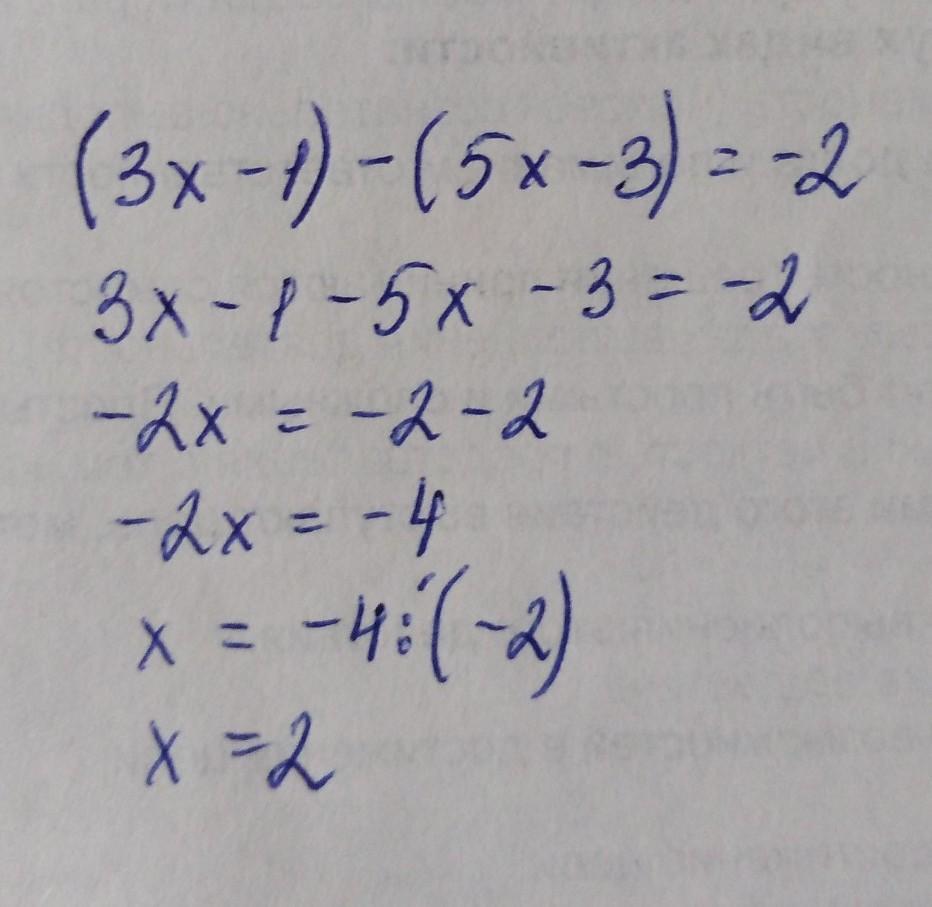 (3x-1)-(5x-3)=-2
3x-1-5x-3=-2
-2x=-2-2
-2x=-4
x=-4:(-2)
x=2